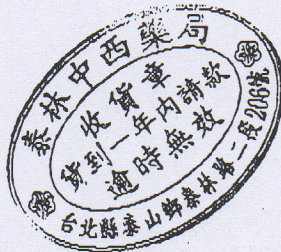 泰林中西藥局
收貨章
貨到一年內請款
逾時無效
台北縣泰山鄉泰林路二段206號